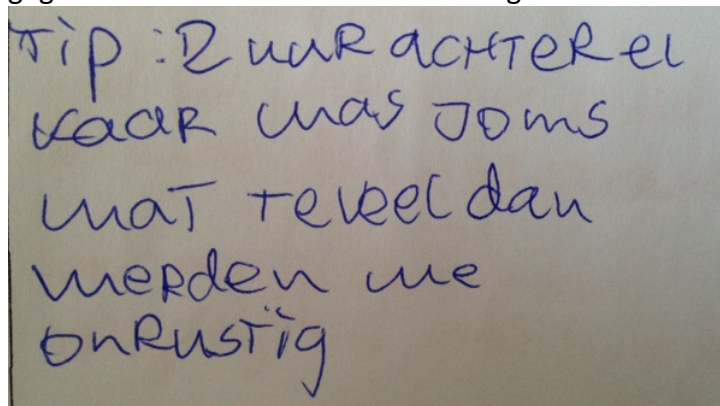 Tip: 2 uur achter el
kaar was soms
wat teveel dan
werden we
onrustig